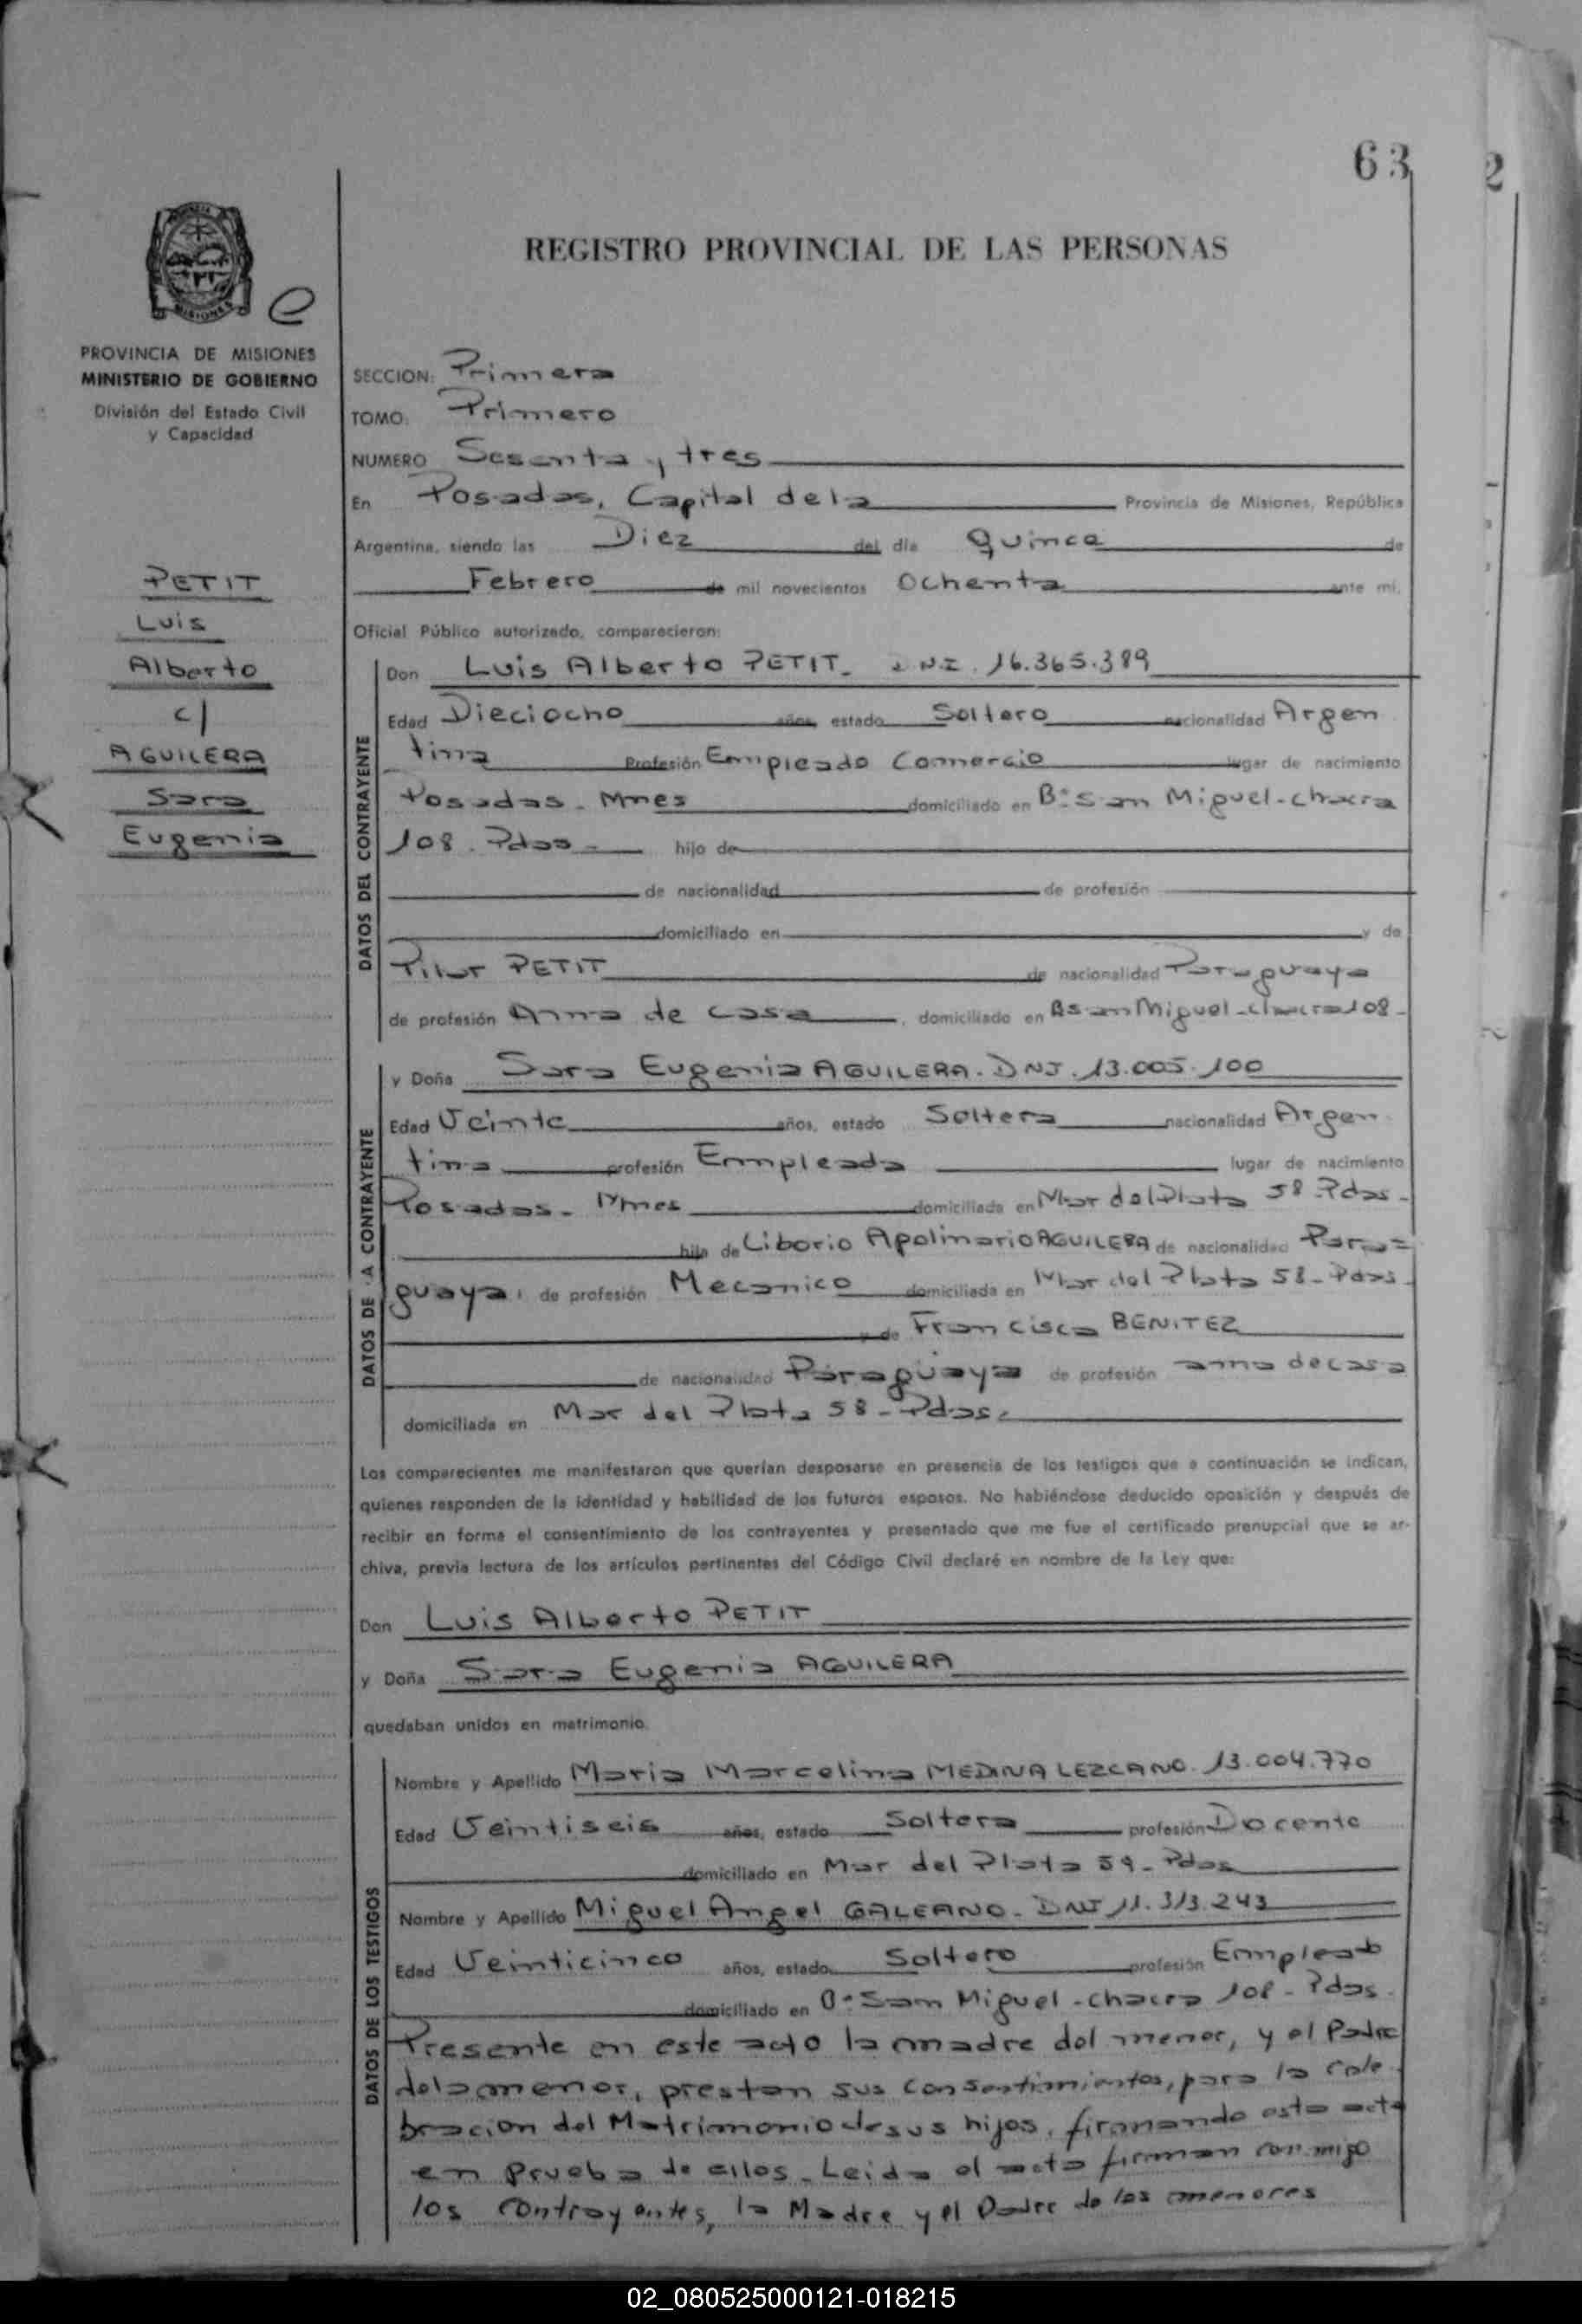 63
2
REGISTRO PROVINCIAL DE LAS PERSONAS
MISIONES
e
PROVINCIA DE MISIONES
MINISTERIO DE GOBIERNO
División del Estado Civil
y Capacidad
PETIT
Luis
Alberto
c/
AGUILERA
Sara
Eugenia
SECCION: Primera
TOMO: Primero
NUMERO Sesenta y tres
En Posadas, Capital de la Provincia de Misiones, República
Argentina, siendo las Diez del día Quince de
Febrero de mil novecientos Ochenta ante mi,
Oficial Público autorizado, comparecieron:
DATOS DEL CONTRAYENTE
Don Luis Alberto PETIT - DNI. 16.365.389
Edad Dieciocho años, estado Soltero nacionalidad Argen
tina Profesión Empleado Comercio lugar de nacimiento
Posadas - Mnes domiciliado en B° San Miguel - chacra
108. Pdas - hijo de
de nacionalidad de profesión
domiciliado en y de
Pilar PETIT de nacionalidad Paraguaya
de profesión Ama de casa, domiciliado en B San Miguel - chacra 108 -
DATOS DE LA CONTRAYENTE
y Doña Sara Eugenia AGUILERA. DNI. 13.005.100
Edad Veinte años, estado Soltera nacionalidad Argen
tina profesión Empleada lugar de nacimiento
Posadas - Mnes domiciliada en Mar del Plata 58 - Pdas -
hija de Liborio Apolinario AGUILERA de nacionalidad Para=
guaya, de profesión Mecanico domiciliada en Mar del Plata 58 - Pdas -
y de Francisca BENITEZ
de nacionalidad Paraguaya de profesión ama de casa
domiciliada en Mar del Plata 58 - Pdas.
Los comparecientes me manifestaron que querían desposarse en presencia de los testigos que a continuación se indican,
quienes responden de la identidad y habilidad de los futuros esposos. No habiéndose deducido oposición y después de
recibir en forma el consentimiento de los contrayentes y presentado que me fue el certificado prenupcial que se ar-
chiva, previa lectura de los artículos pertinentes del Código Civil declaré en nombre de la Ley que:
Don Luis Alberto PETIT
y Doña Sara Eugenia AGUILERA
quedaban unidos en matrimonio.
DATOS DE LOS TESTIGOS
Nombre y Apellido Maria Marcelina MEDINA LEZCANO. 13.004.770
Edad Veintiseis años, estado Soltera profesión Docente
domiciliado en Mar del Plata 59 - Pdas
Nombre y Apellido Miguel Angel GALEANO - DNI 11.313.243
Edad Veinticinco años, estado Soltero profesión Empleado
domiciliado en B° San Miguel - chacra 108 - Pdas.
Presente en este acto la madre del menor, y el Padre
de la menor, prestan sus consentimientos, para la cele
bracion del Matrimonio de sus hijos, firmando esta acta
en prueba de ellos - Leida el acta firman conmigo
los contrayentes, la Madre y el Padre de los menores
02_080525000121-018215